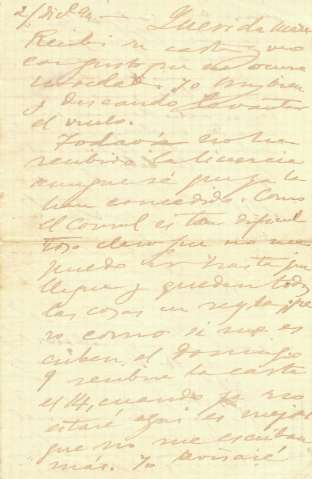 2/Dic/94.— Querida Mari
Recibí tu carta y veo
con gusto que no ocurre
novedad. Yo muy bien
y deseando levantar
el vuelo.
Todavía no he
recibido la licencia
aunque sé que ya la
han concedido. Como
el Coronel es tan dificul
toso claro que no me
puedo ir hasta que
llegue y queden todas
las cosas en regla, pe
ro como si me es
criben el Domingo
9 recibiré la carta
el 14, cuando ya no
estaré aquí es mejor
que no me escriban
más. Yo avisaré